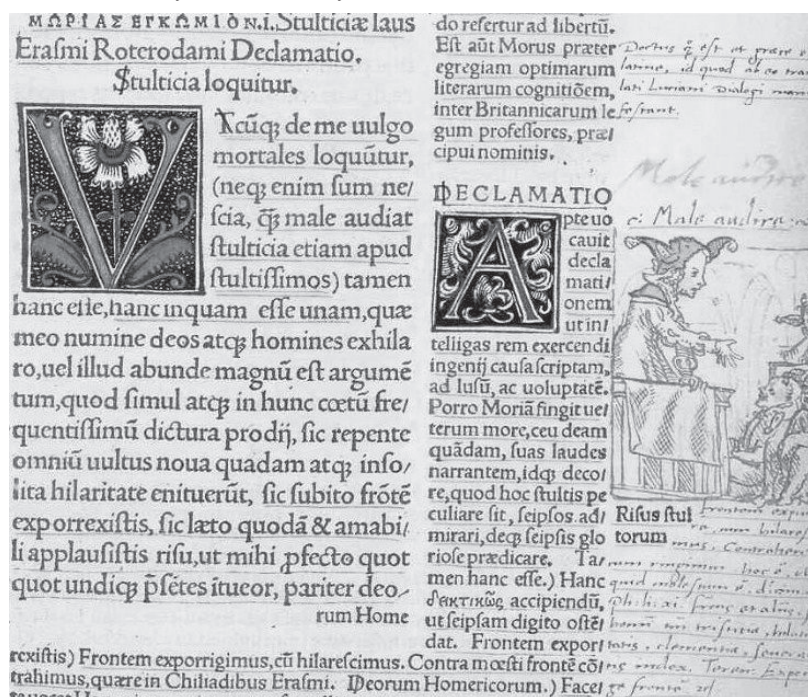 ΜΩΡΙΑΣ ΕΓΚΩΜΙΟΝ.i.Stulticiæ laus
Erasmi Roterodami Declamatio.
Stulticia loquitur.
VTcūq; de me uulgo
mortales loquūtur,
(neq; enim sum ne/
scia, q̃ꝫ male audiat
stulticia etiam apud
stultissimos) tamen
hanc esse,hanc inquam esse unam,quæ
meo numine deos atq; homines exhila
ro,uel illud abunde magnū est argumē
tum,quod simul atq; in hunc cœtū fre/
quentissimū dictura prodij, sic repente
omniū uultus noua quadam atq; inso/
lita hilaritate enituerūt, sic subito frōtē
exporrexistis, sic læto quodā & amabi/
li applausistis risu,ut mihi ꝓfecto quot
quot undiq; p̄sētes ītueor, pariter deo/
rum Home
do refertur ad libertū.
Est aūt Morus præter
egregiam optimarum
literarum cognitiōem,
inter Britannicarum le
gum professores, præ/
cipui nominis.
DECLAMATIO
Apte uo
cauit
decla
mati/
onem
ut in/
telligas rem exercendi
ingenij causa scriptam,
ad lusū, ac uoluptatē.
Porro Moriā fingit ue/
terum more,ceu deam
quādam, suas laudes
narrantem,idq; deco/
re,quod hoc stultis pe
culiare sit, seipsos ad/
mirari,deq; seipsis glo
riose prædicare. Ta/
men hanc esse.) Hanc
δεκτικῶς accipiendū,
ut seipsam digito ostē/
dat. Frontem expor/
rexistis) Frontem exporrigimus,cū hilarescimus. Contra mœsti frontē cō/
trahimus,quære in Chiliadibus Erasmi. Deorum Homericorum.) Facē/
Doctus q̃ est et
latine, id quod ab eo
lati Luciani Dialogi
Male audire
c: Male audire
Risus stul
torum